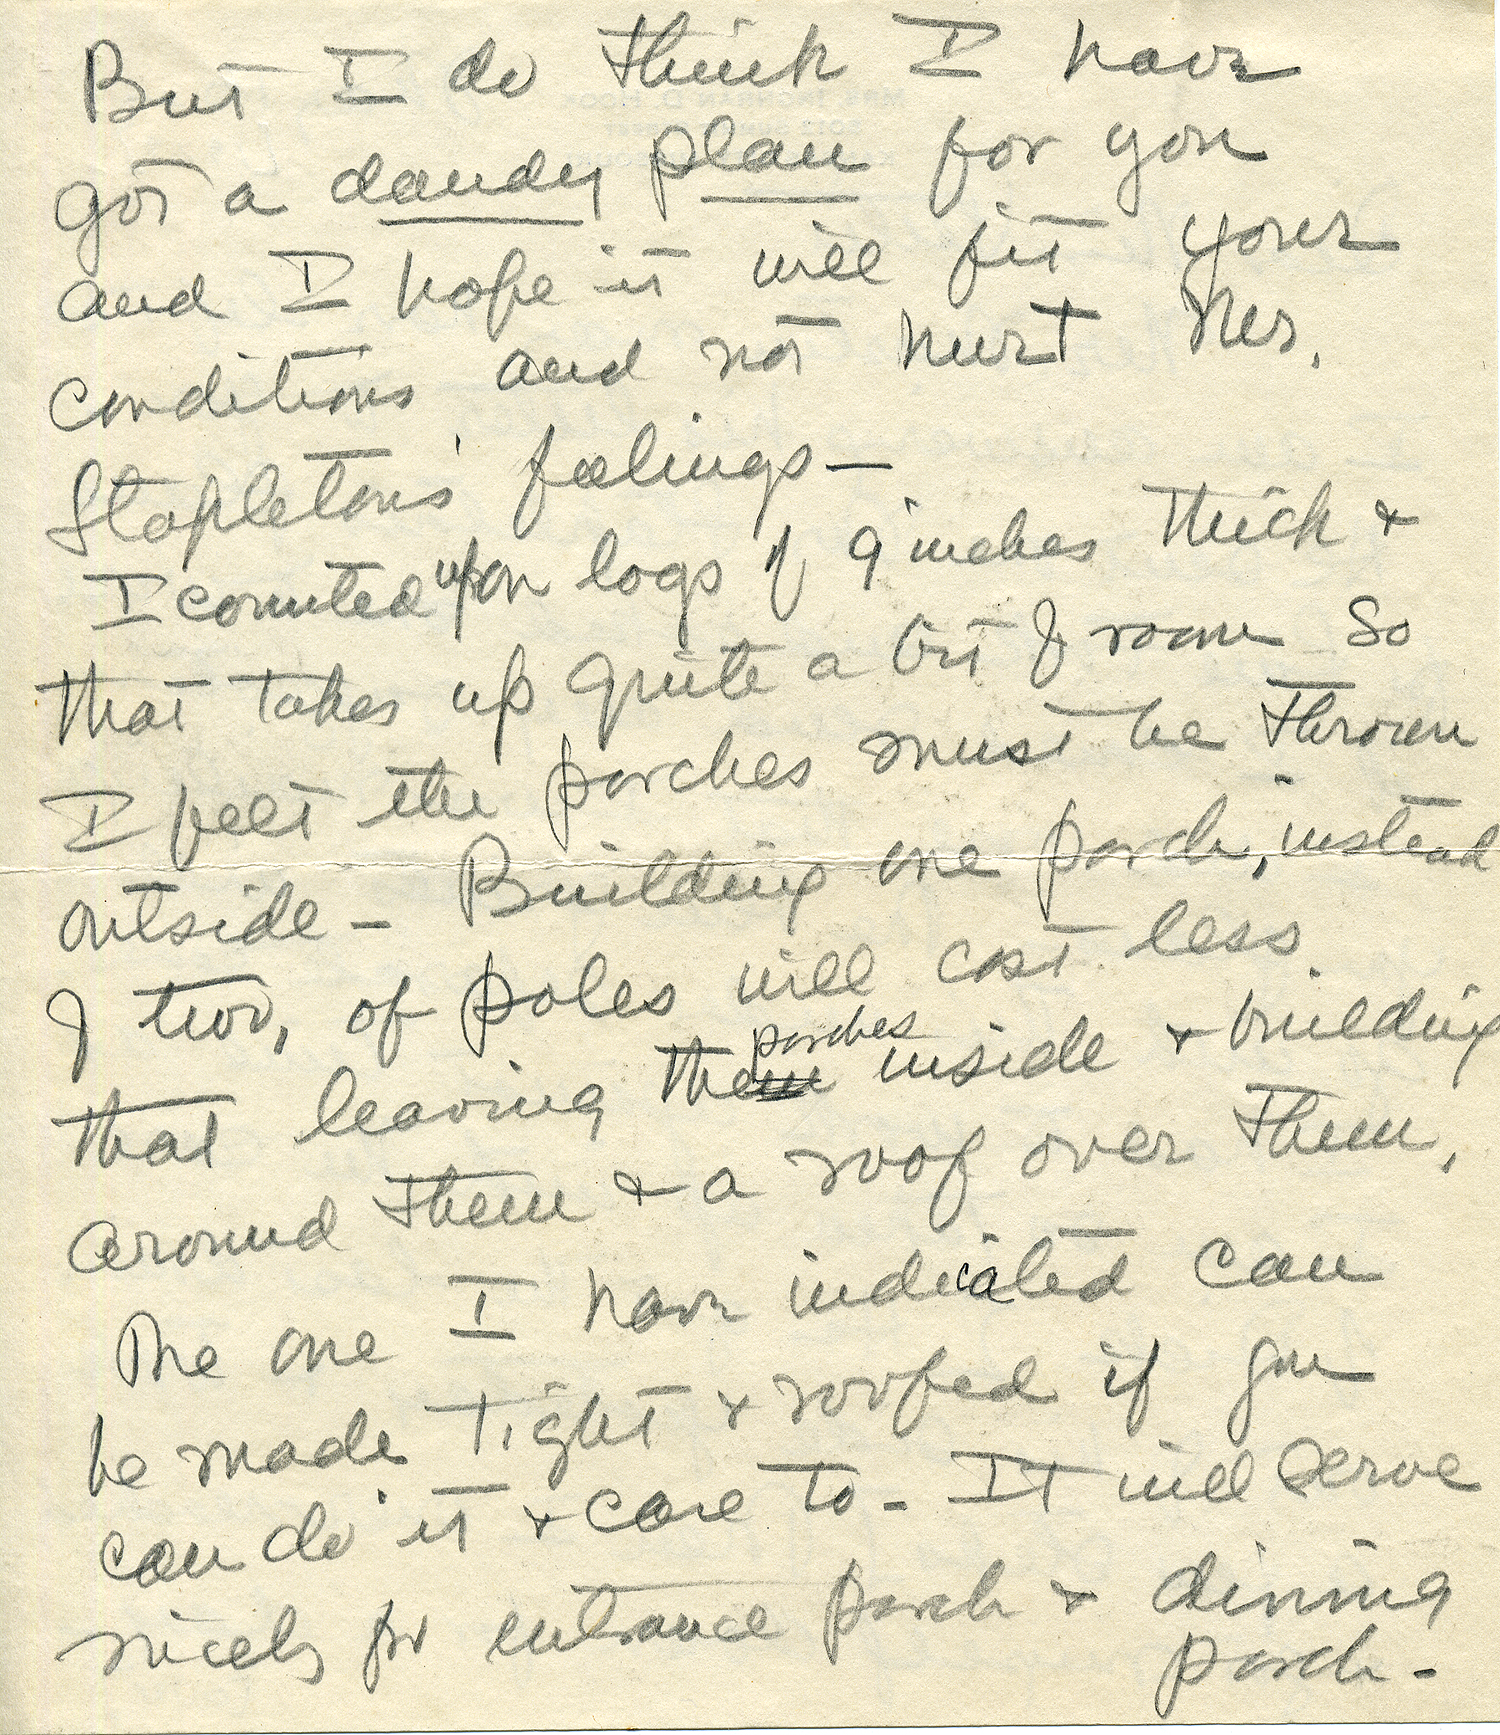 But I do think I have
got a dandy plan for you
and I hope it will fit your
conditions and not hurt Mrs.
Stapletons' feelings—
I counted upon logs of 9 inches thick &
that takes up quite a bit of room so
I felt the porches must be thrown
outside— Building one porch, instead
of two, of poles will cost less
that leaving them porches inside & building
around them & a roof over them,
The one I have indicated can
be made tight & roofed if you
can do it & care to- It will serve
nicely for entrance porch & dining
porch-